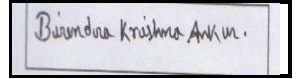 Birendra Krishna Ankur.